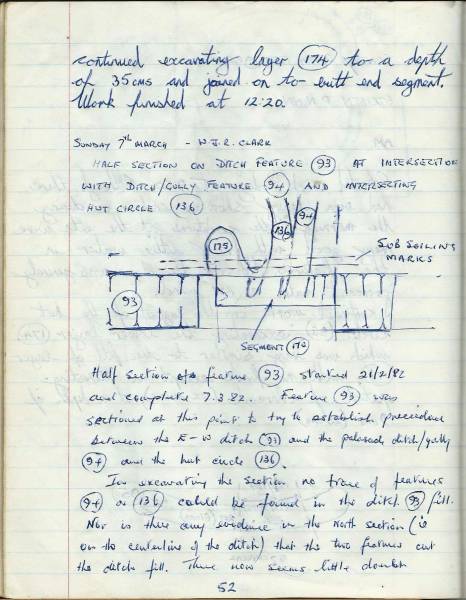 continued excavating layer (174) to a depth
of 35cms and joined on to butt end segment.
Work finished at 12:20.
SUNDAY 7TH MARCH - W.J.R. CLARK
HALF SECTION ON DITCH FEATURE (93) AT INTERSECTION
WITH DITCH/GULLY FEATURE (94) AND INTERSECTING
HUT CIRCLE (136)
136
94
175
SUB SOILING
MARKS
93
SEGMENT (170)
Half section of feature (93) started 21/2/82
and complete 7.3.82. Feature (93) was
sectioned at this point to try to establish precedence
between the E-W ditch (93) and the palisade ditch/gully
(94) and the hut circle (136).
In excavating the section no trace of features
(94) or (136) could be found in the ditch (93) fill.
Nor is there any evidence in the north section (ie
on the centerline of the ditch) that the two features cut
the ditch fill. There now seems little doubt
52